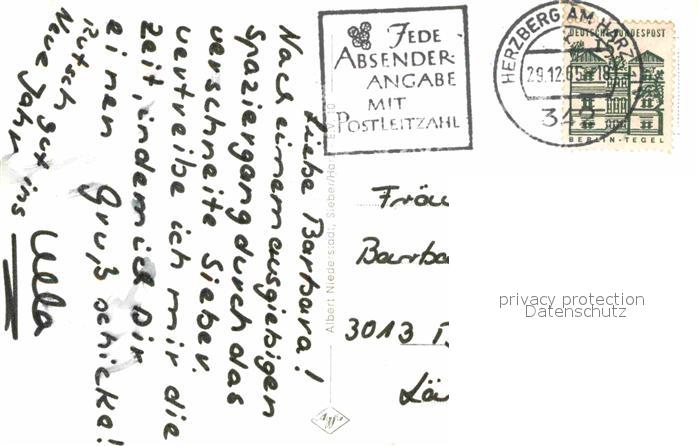 Liebe Barbara!
Nach einem ausgiebigen
Spaziergang durch das
verschneite Sieber
vertreibe ich mir die
Zeit, indem ich Dir
einen Gruß schicke!
Rutsch gut ins
Neue Jahr
Ulla
JEDE
ABSENDER-
ANGABE
MIT
POSTLEITZAHL
HERZBERG AM HARZ
29.12.65.-18
342
DEUTSCHE BUNDESPOST
15
BERLIN-TEGEL
Albert Niederstadt, Sieber/Harz
Agfa
Fräu
Barba
3013
privacy protection
Datenschutz